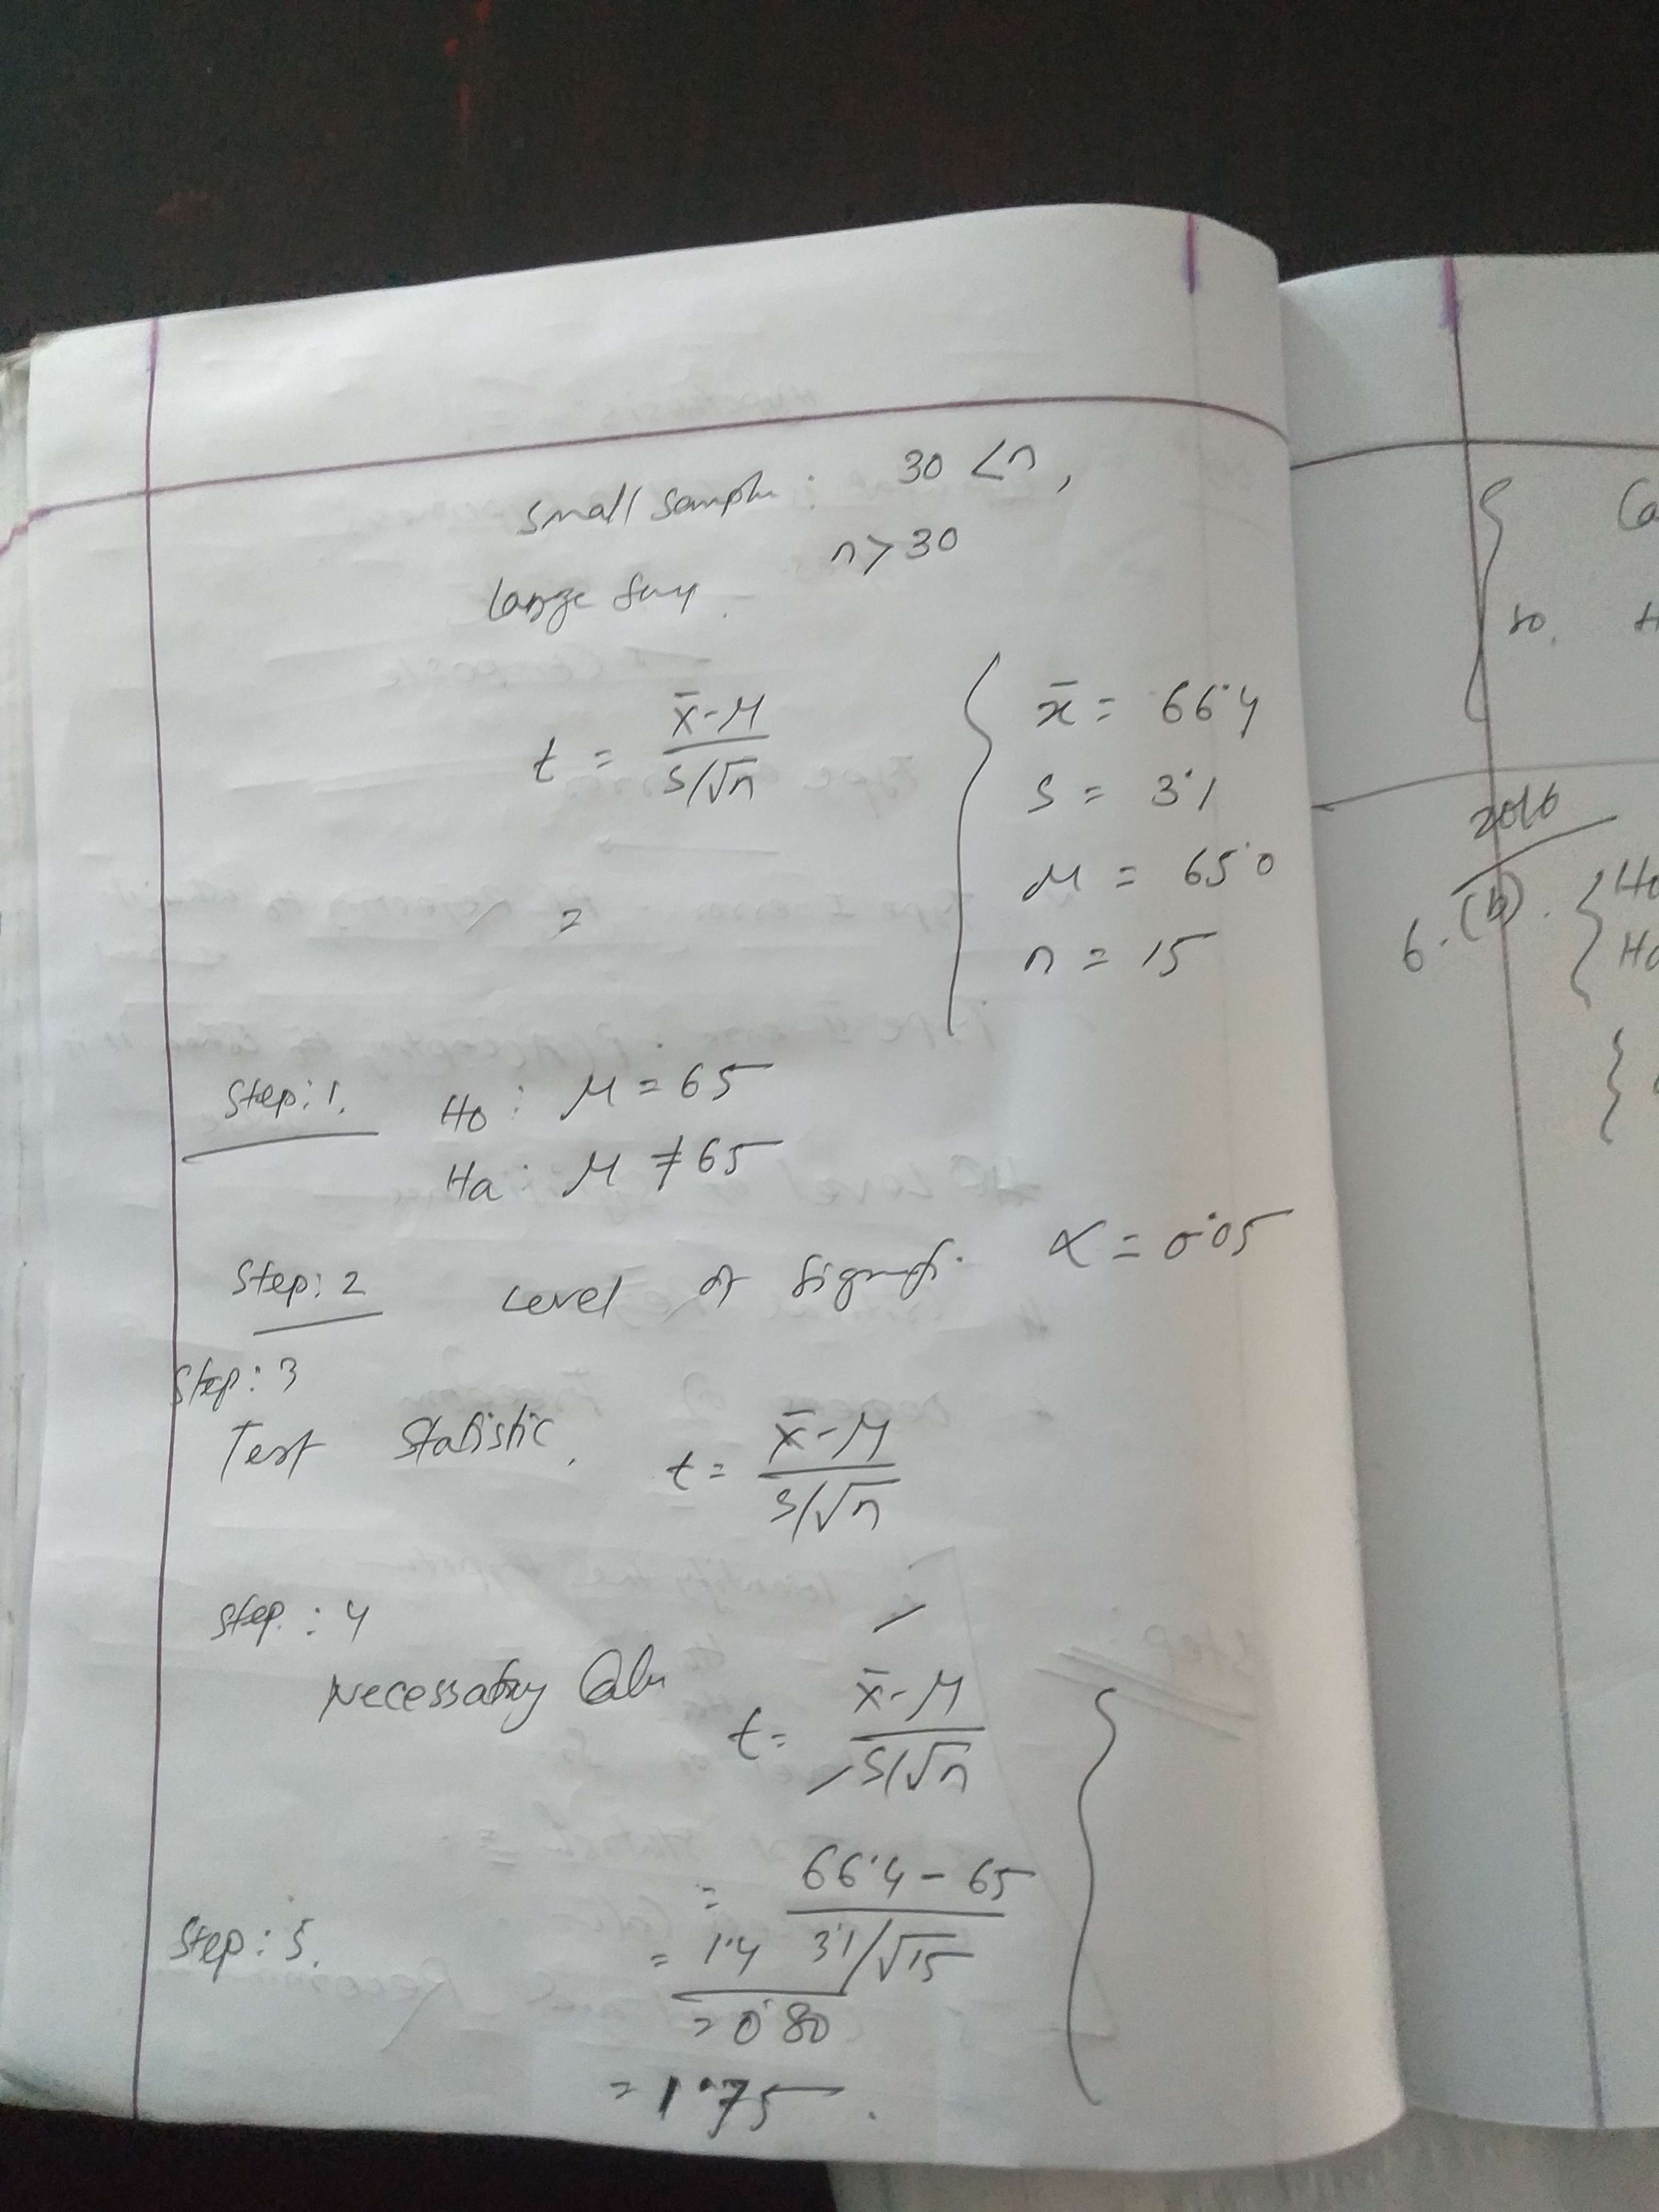 small sample : 30 < n,
large n > 30
t = x̄-μ / s/√n
x̄ = 66.4
s = 3.1
μ = 65.0
n = 15
=
Step: 1. Ho : μ = 65
Ha : μ ≠ 65
Step: 2 Level of Signf. α = 0.05
Step: 3
Test Statistic, t = x̄-μ / s/√n
Step : 4
Necessatry
t = x̄-μ / s/√n
= 66.4 - 65 / 3.1/√15
Step : 5. = 1.4
= 0.80
= 1.75.
Ca
so, H
2016
6. (b). Ho
Ha